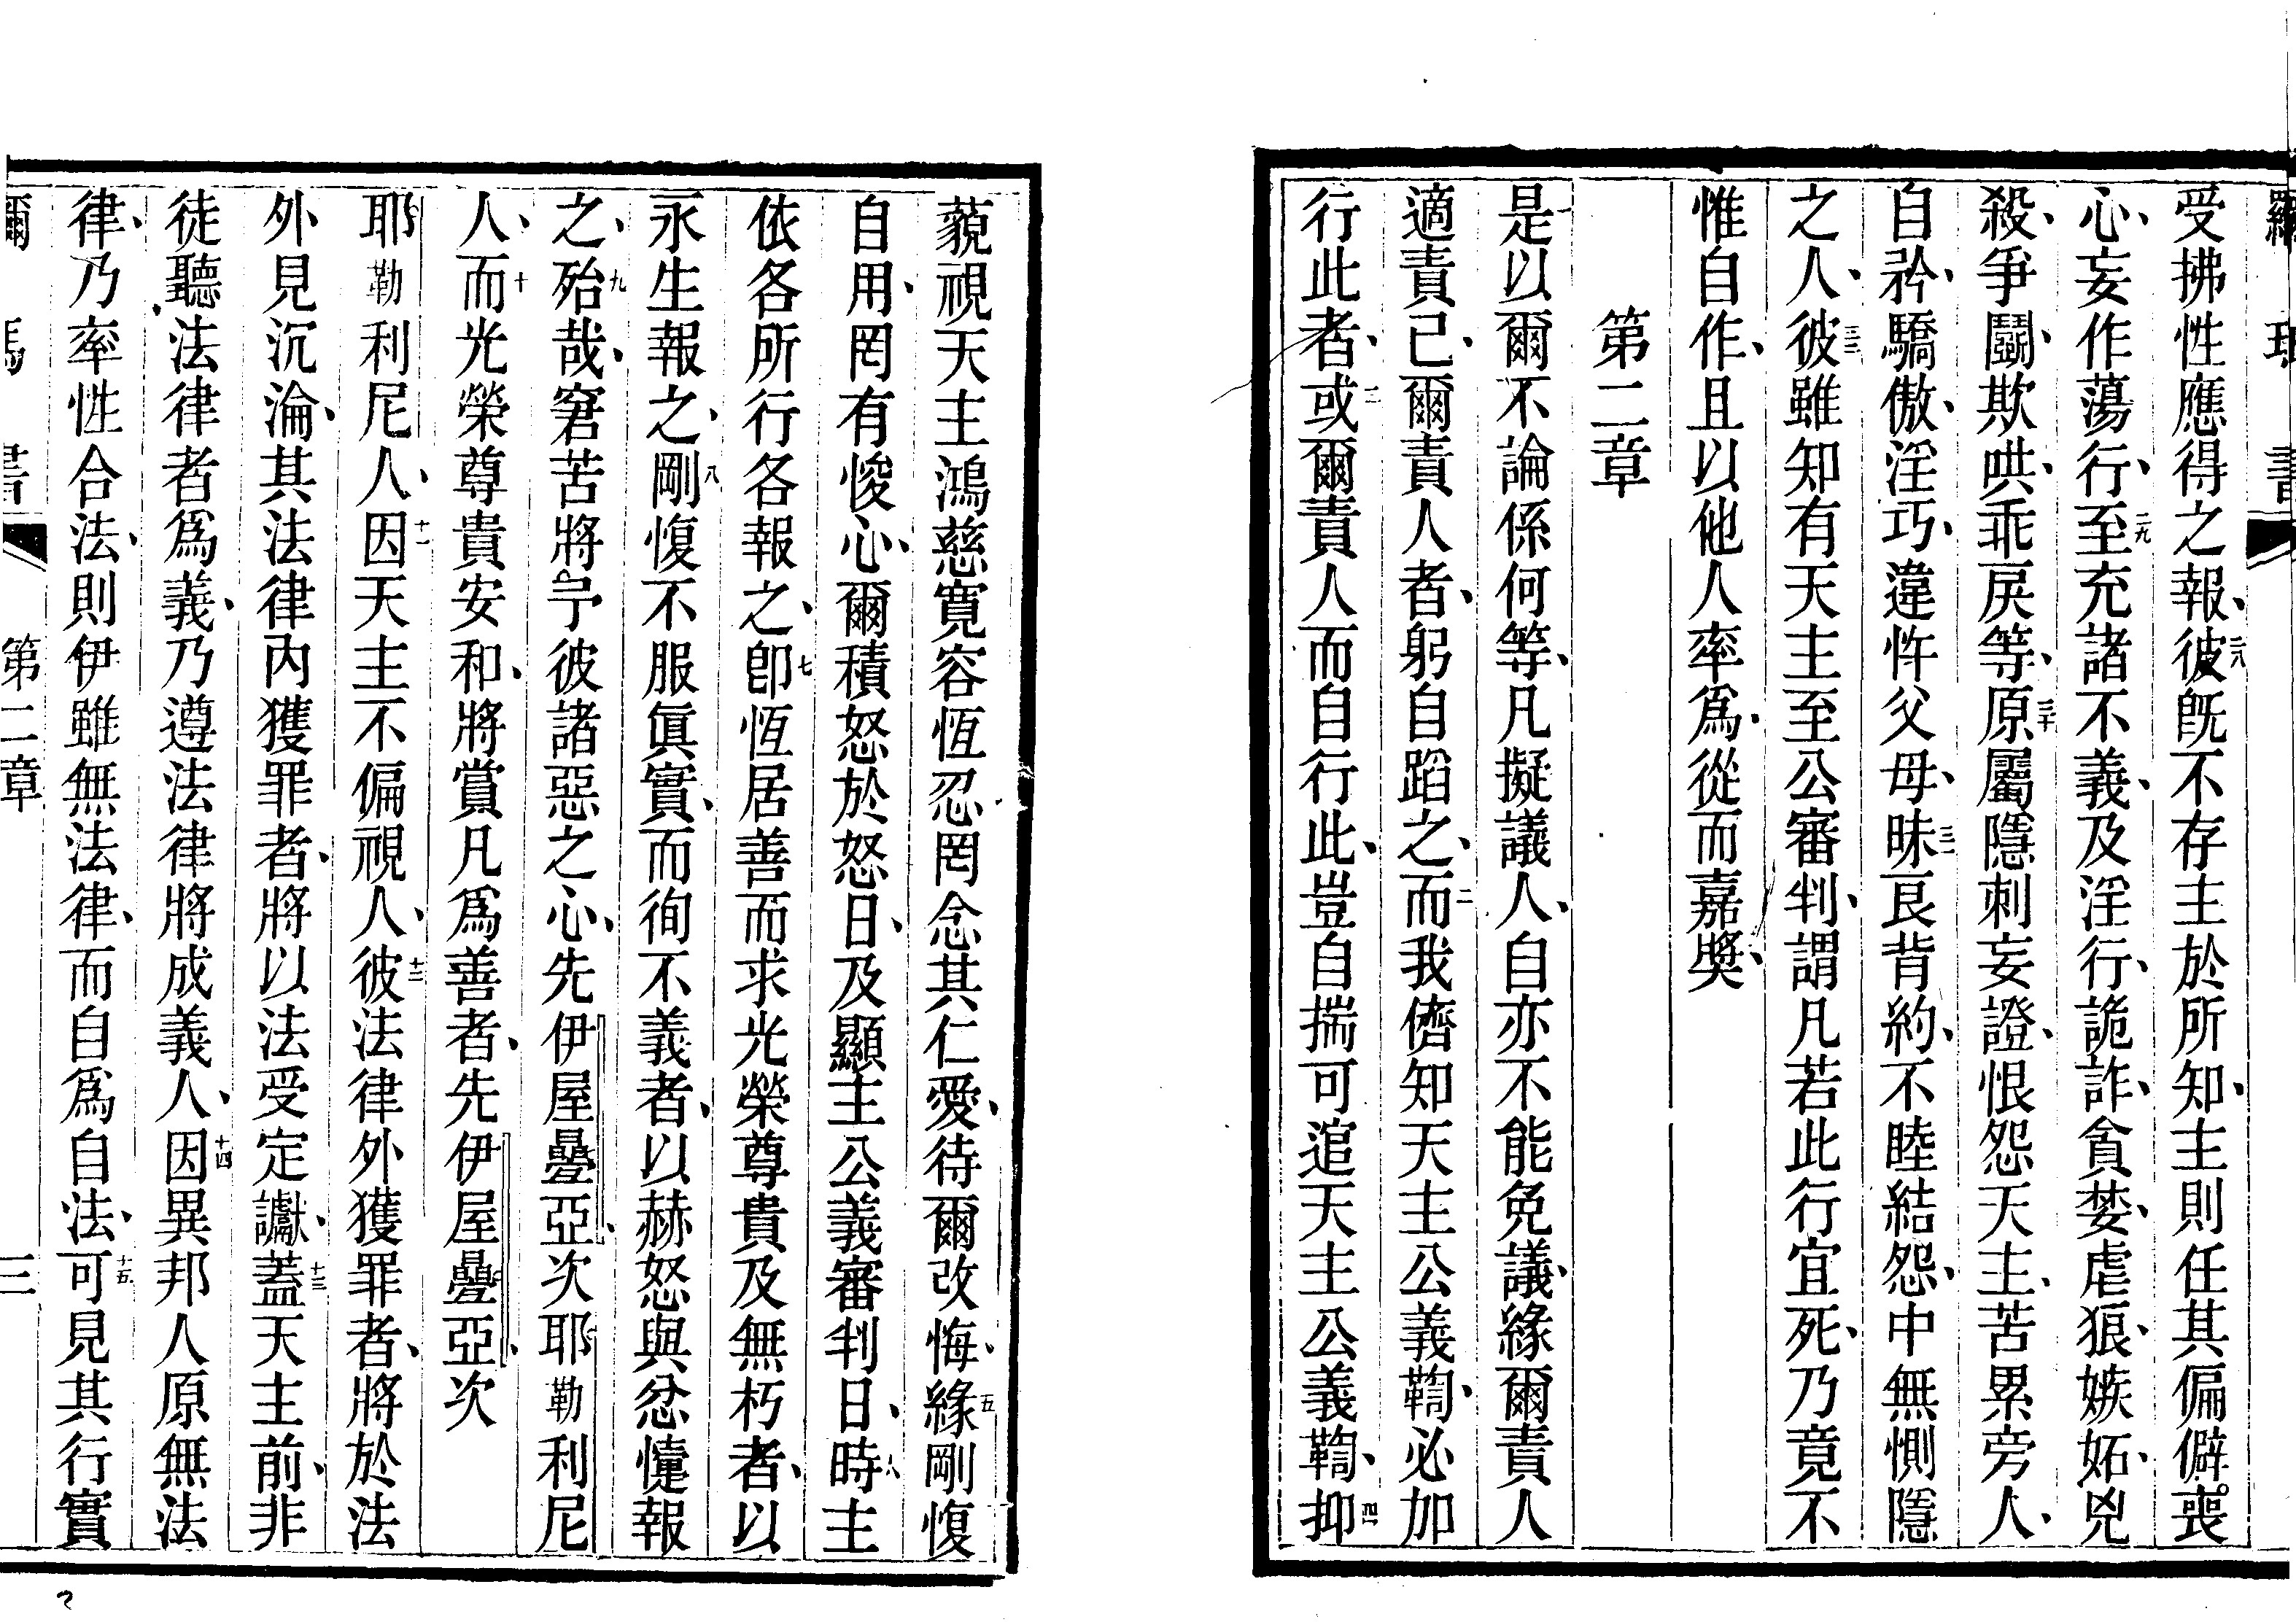 羅瑪書
受拂性應得之報、二八彼旣不存主於所知、主則任其偏僻。喪
心、妄作蕩行、二九至充諸不義、及淫行、詭詐、貪婪、虐狠、嫉妬、兇
殺、爭鬭、欺哄、乖戾等、三十原屬隱刺妄證、恨怨天主、苦累旁人、
自矜、驕傲、淫巧、違忤父母、三一昧良背約、不睦結怨、中無惻隱
之人、三二彼雖知有天主至公審判、謂凡若此行宜死、乃竟不
惟自作、且以他人率爲、從而嘉奬、
第二章
是以爾不論係何等、凡擬議人、自亦不能免議、緣爾責人
適責己、爾責人者、躬自蹈之、二而我儕知天主公義鞫、必加
行此者、三或爾責人而自行此、豈自揣可逭天主公義鞫、四抑
藐視天主鴻慈寬容恆忍、罔念其仁愛、待爾改悔、五緣剛愎
自用、罔有悛心、爾積怒於怒日、及顯主公義審判日、時六主
依各所行各報之、七卽恆居善而求光榮尊貴及無朽者、以
永生報之、八剛愎不服眞實、而徇不義者、以赫怒與忿懥報
之、九殆哉、窘苦將予彼諸惡之心、先伊屋疊亞、次耶勒利尼
人、十而光榮尊貴安和、將賞凡爲善者、先伊屋疊亞、次
耶勒利尼人、十一因天主不偏視人、十二彼法律外獲罪者、將於法
外見沉淪、其法律內獲罪者、將以法受定讞、十三蓋天主前、非
徒聽法律者爲義、乃遵法律將成義人、十四因異邦人原無法
律、乃率性合法、則伊雖無法律、而自爲自法、十五可見其行實
第二章
三